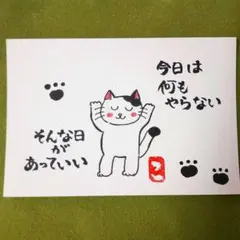 今日は
何も
やらない
そんな日
が
あっていい